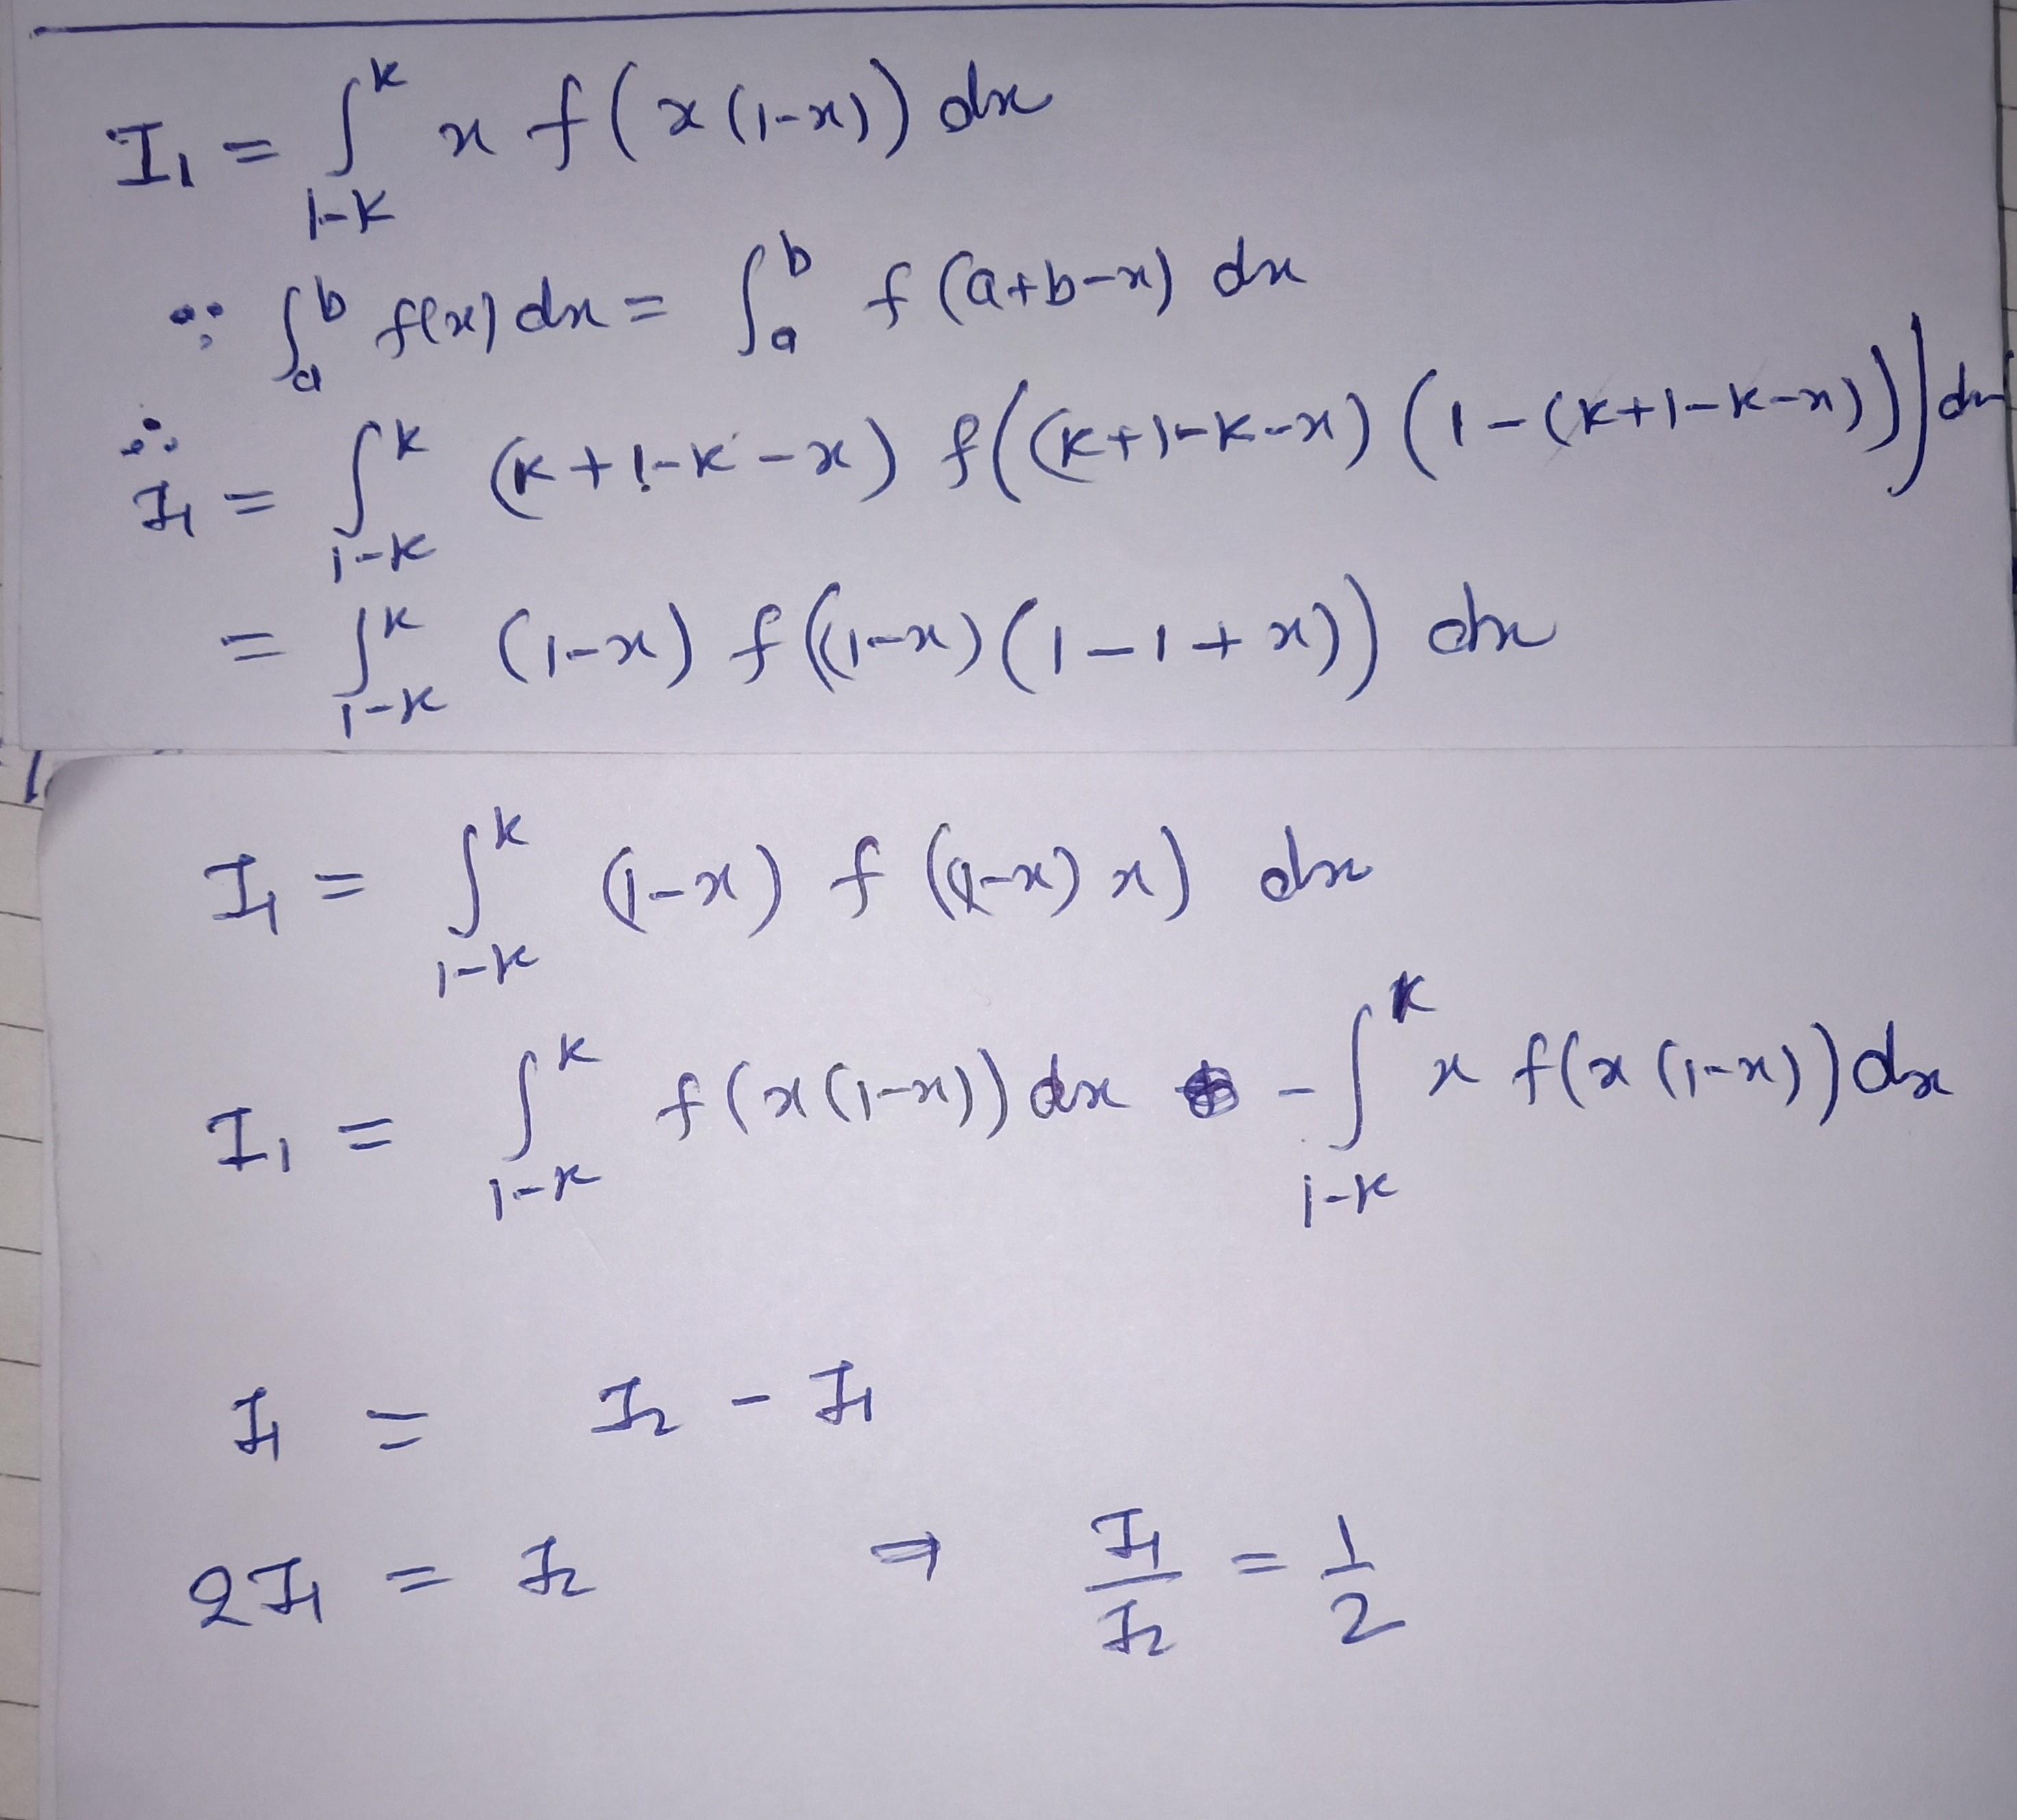 I₁ = ∫_{1-k}^{k} x f(x(1-x)) dx
∵ ∫_{a}^{b} f(x) dx = ∫_{a}^{b} f(a+b-x) dx
∴
I₁ = ∫_{1-k}^{k} (k+1-k-x) f((k+1-k-x)(1-(k+1-k-x))) dx
= ∫_{1-k}^{k} (1-x) f((1-x)(1-1+x)) dx
I₁ = ∫_{1-k}^{k} (1-x) f((1-x)x) dx
I₁ = ∫_{1-k}^{k} f(x(1-x)) dx - ∫_{1-k}^{k} x f(x(1-x)) dx
I₁ = I₂ - I₁
2I₁ = I₂ ⇒ I₁/I₂ = 1/2